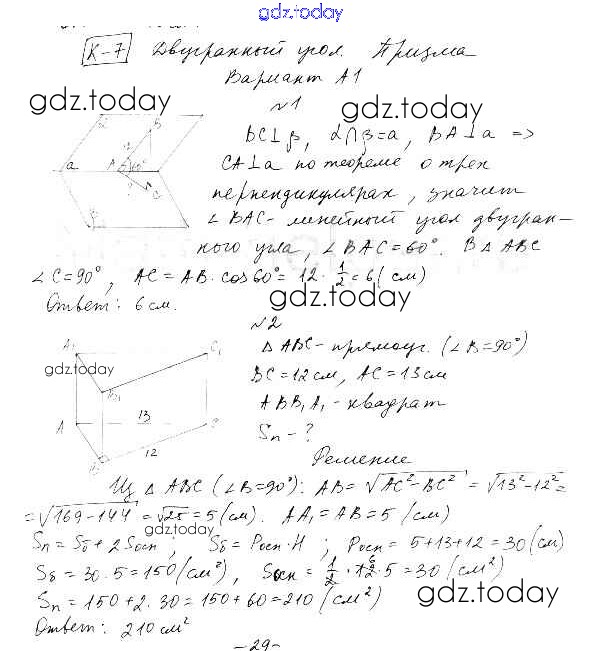 gdz.today
К-7 Двугранный угол. Призма
Вариант А1
gdz.today
gdz.today
№1
BC⊥β, α∩β=a, BA⊥a =>
CA⊥a по теореме о трех
перпендикулярах, значит
∠BAC- линейный угол двугран-
ного угла, ∠BAC=60°. В ΔABC
∠C=90°, AC=AB·cos60°=12·1/2=6(см)
Ответ: 6 см.
gdz.today
a
A
B
C
60°
β
№2
ΔABC-прямоуг. (∠B=90°)
BC=12см, AC=13см
ABB₁A₁-квадрат
Sп-?
Решение
A₁
C₁
gdz.today
B₁
A
13
12
Из ΔABC (∠B=90°): AB=√AC²-BC²=√13²-12²=
=√169-144=√25=5(см). AA₁=AB=5(см)
gdz.today
Sп=Sб+2Sосн; Sб=Pосн·H; Pосн=5+13+12=30(см)
Sб=30·5=150(см²), Sосн=1/2·12·5=30(см²)
Sп=150+2·30=150+60=210(см²)
gdz.today
Ответ: 210 см²
-29-